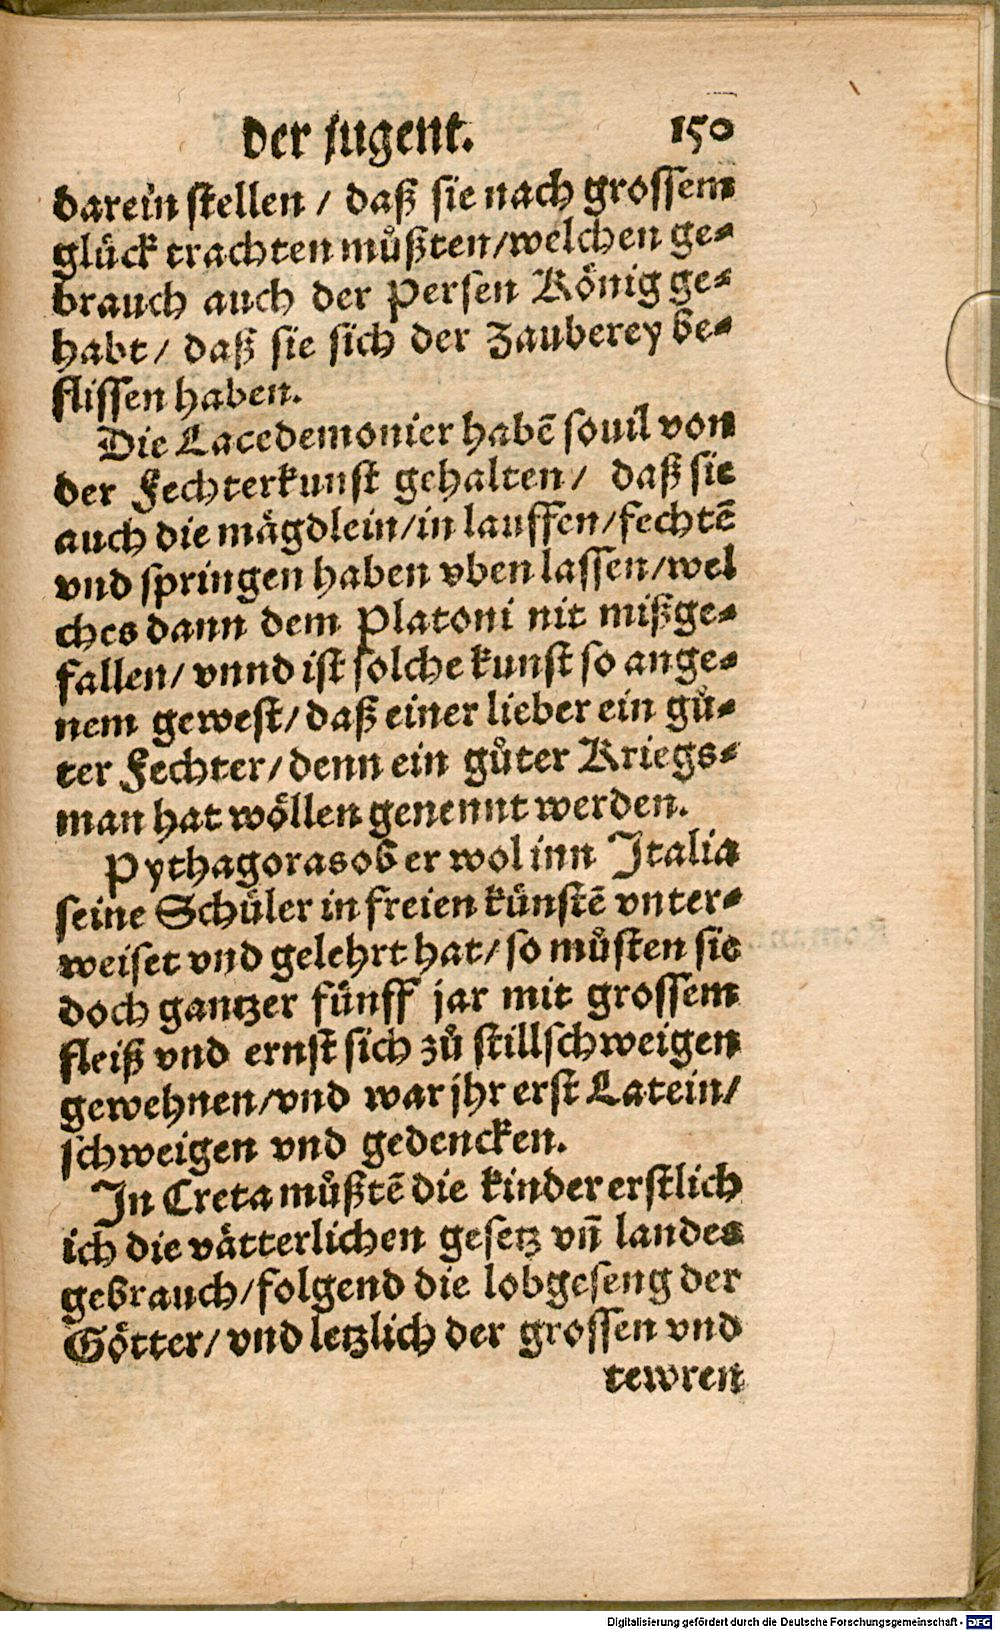 der jugent. 150
darein stellen / daß sie nach grossem
glück trachten muͤßten/welchen ge⸗
brauch auch der Persen Koͤnig ge⸗
habt/ daß sie sich der Zauberey be⸗
flissen haben.
Die Lacedemonier habẽ souil von
der Fechterkunst gehalten/ daß sie
auch die maͤgdlein/in lauffen/fechtẽ
vnd springen haben vben lassen/wel
ches dann dem Platoni nit mißge⸗
fallen/ vnnd ist solche kunst so ange⸗
nem gewest/ daß einer lieber ein guͦ⸗
ter Fechter/ denn ein guͦter Kriegs⸗
man hat woͤllen genennt werden.
Pythagoras ob er wol inn Italia
seine Schuͤler in freien kuͤnstẽ vnter⸗
weiset vnd gelehrt hat/ so muͦsten sie
doch gantzer fuͤnff jar mit grossem
fleiß vnd ernst sich zuͦ stillschweigen
gewehnen/vnd war jhr erst Latein/
schweigen vnd gedencken.
In Creta muͦßtẽ die kinder erstlich
ich die vaͤtterlichen gesetz vñ landes
gebrauch/folgend die lobgeseng der
Goͤtter/ vnd letzlich der grossen vnd
tewren
Digitalisierung gefördert durch die Deutsche Forschungsgemeinschaft - DFG